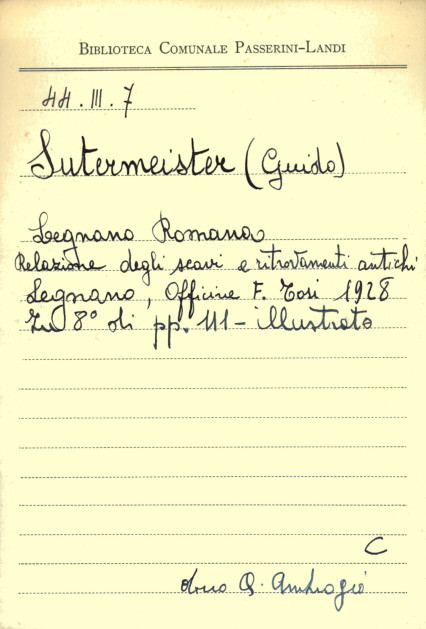 BIBLIOTECA COMUNALE PASSERINI-LANDI
HH.III.7
Sutermeister (Guido)
Legnano Romana
Relazione degli scavi e ritrovamenti antichi
Legnano, Officine F. Tosi 1928
In 8° di pp. 111 - illustrato
C
dono Q. Ambrogio